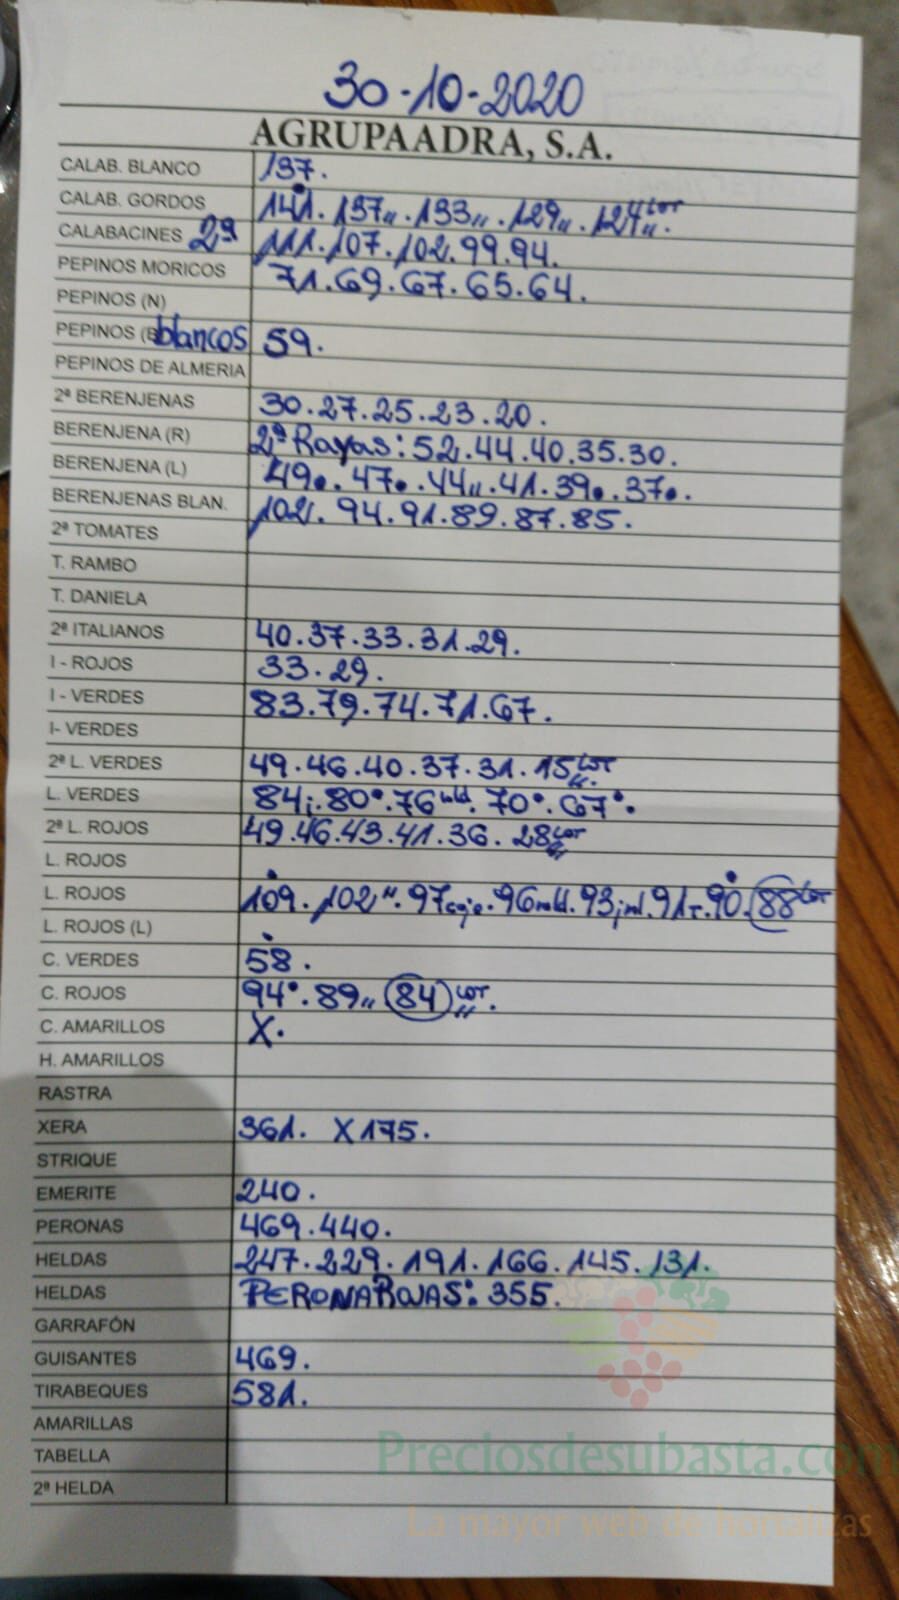 30-10-2020
AGRUPAADRA, S.A.
CALAB. BLANCO 137.
CALAB. GORDOS 141. 137,, . 133,, . 129,, . 124,, LOT.
CALABACINES 2ª 111. 107. 102. 99. 94.
PEPINOS MORICOS 71. 69. 67. 65. 64.
PEPINOS (N)
PEPINOS (B blancos 59.
PEPINOS DE ALMERIA
2ª BERENJENAS 30. 27. 25. 23. 20.
BERENJENA (R) 2ª Rayas: 52. 44. 40. 35. 30.
BERENJENA (L) 49•. 47•. 44,, . 41. 39•. 37•.
BERENJENAS BLAN. 102. 94. 91. 89. 87. 85.
2ª TOMATES
T. RAMBO
T. DANIELA
2ª ITALIANOS 40. 37. 33. 31. 29.
I - ROJOS 33. 29.
I - VERDES 83. 79. 74. 71. 67.
I- VERDES
2ª L. VERDES 49. 46. 40. 37. 31. 15 LOT,,.
L. VERDES 84; 80°. 76. 70°. 67°.
2ª L. ROJOS 49. 46. 43. 41. 36. 28 LOT,,
L. ROJOS
L. ROJOS 109. 102". 97. 96. 93. 91. 90. 88 LOT
L. ROJOS (L)
C. VERDES 58.
C. ROJOS 94°. 89,, 84 LOT,,.
C. AMARILLOS X.
H. AMARILLOS
RASTRA
XERA 361. X 175.
STRIQUE
EMERITE 240.
PERONAS 469. 440.
HELDAS 247. 229. 191. 166. 145. 131.
HELDAS PERONA ROJAS: 355.
GARRAFÓN
GUISANTES 469.
TIRABEQUES 581.
AMARILLAS
TABELLA
2ª HELDA
Preciosdesubasta.com
La mayor web de hortalizas